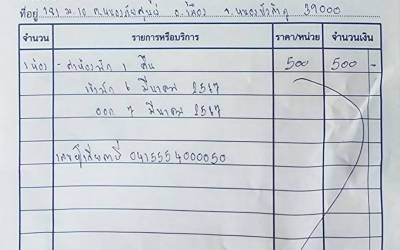 ที่อยู่ 181 ม.10 ต.หนองภัยศูนย์ อ.เมือง จ.หนองบัวลำภู 39000
จำนวน รายการหรือบริการ ราคา/หน่วย จำนวนเงิน
1 ห้อง - ค่าห้องพัก 1 คืน 500 500 -
เข้าพัก 6 มีนาคม 2567
ออก 7 มีนาคม 2567
เลขผู้เสียภาษี 0415554000050